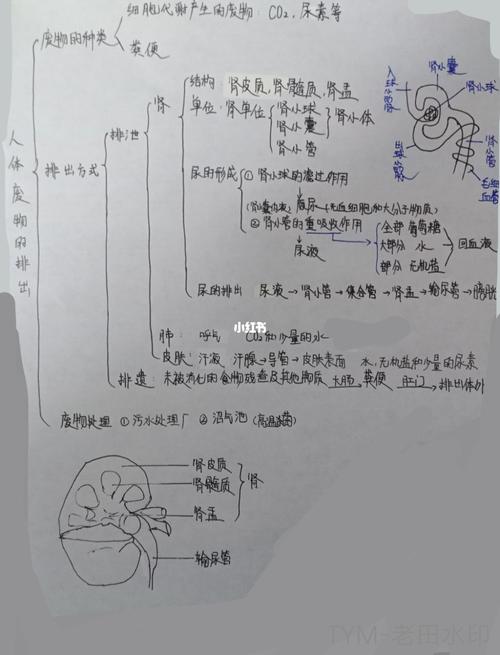 细胞代谢产生的废物: CO₂、尿素等
废物的种类
粪便
人体废物的排出
排出方式
排泄
肾
结构: 肾皮质, 肾髓质, 肾盂
单位: 肾单位
肾小球
肾小囊
肾小体
肾小管
尿的形成
① 肾小球的滤过作用
(肾小囊内液) 原尿 (无血细胞和大分子物质)
② 肾小管的重吸收作用
尿液
全部 葡萄糖
大部分 水
部分 无机盐
回血液
尿的排出 尿液→肾小管→集合管→肾盂→输尿管→膀胱
肺: 呼气 CO₂和少量的水
皮肤: 汗液 汗腺→导管→皮肤表面 水,无机盐和少量的尿素
排遗: 未被消化的食物残渣及其他物质 大肠 粪便 肛门 排出体外
废物处理 ① 污水处理厂 ② 沼气池 (高温灭菌)
入球小动脉
肾小囊
肾小球
肾小管
出球小动脉
毛细血管
小红书
肾皮质
肾髓质
肾盂
肾
输尿管
TYM-老田水印